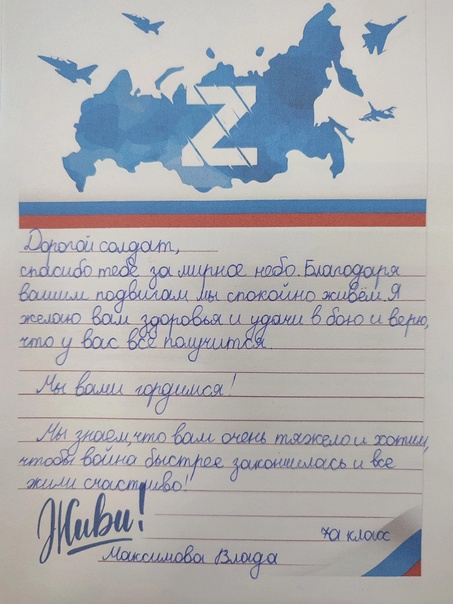 Z
Дорогой солдат,
спасибо тебе за мирное небо. Благодаря
вашим подвигам мы спокойно живём. Я
желаю вам здоровья и удачи в бою и верю,
что у вас всё получится.
Мы вами гордимся!
Мы знаем, что вам очень тяжело и хотим,
чтобы война быстрее закончилась и все
жили счастливо!
Живи!
7а класс
Максимова Влада